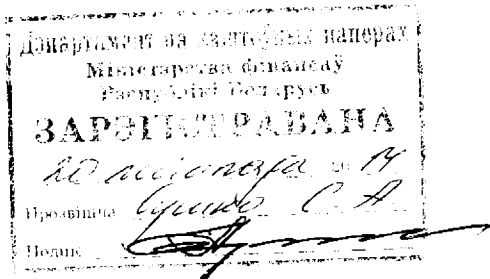 Дэпартамент па каштоўных паперах
Міністэрства фінансаў
Рэспублікі Беларусь
ЗАРЭГІСТРАВАНА
20 лістапада 20 14
Прозвішча С. А
Подпіс